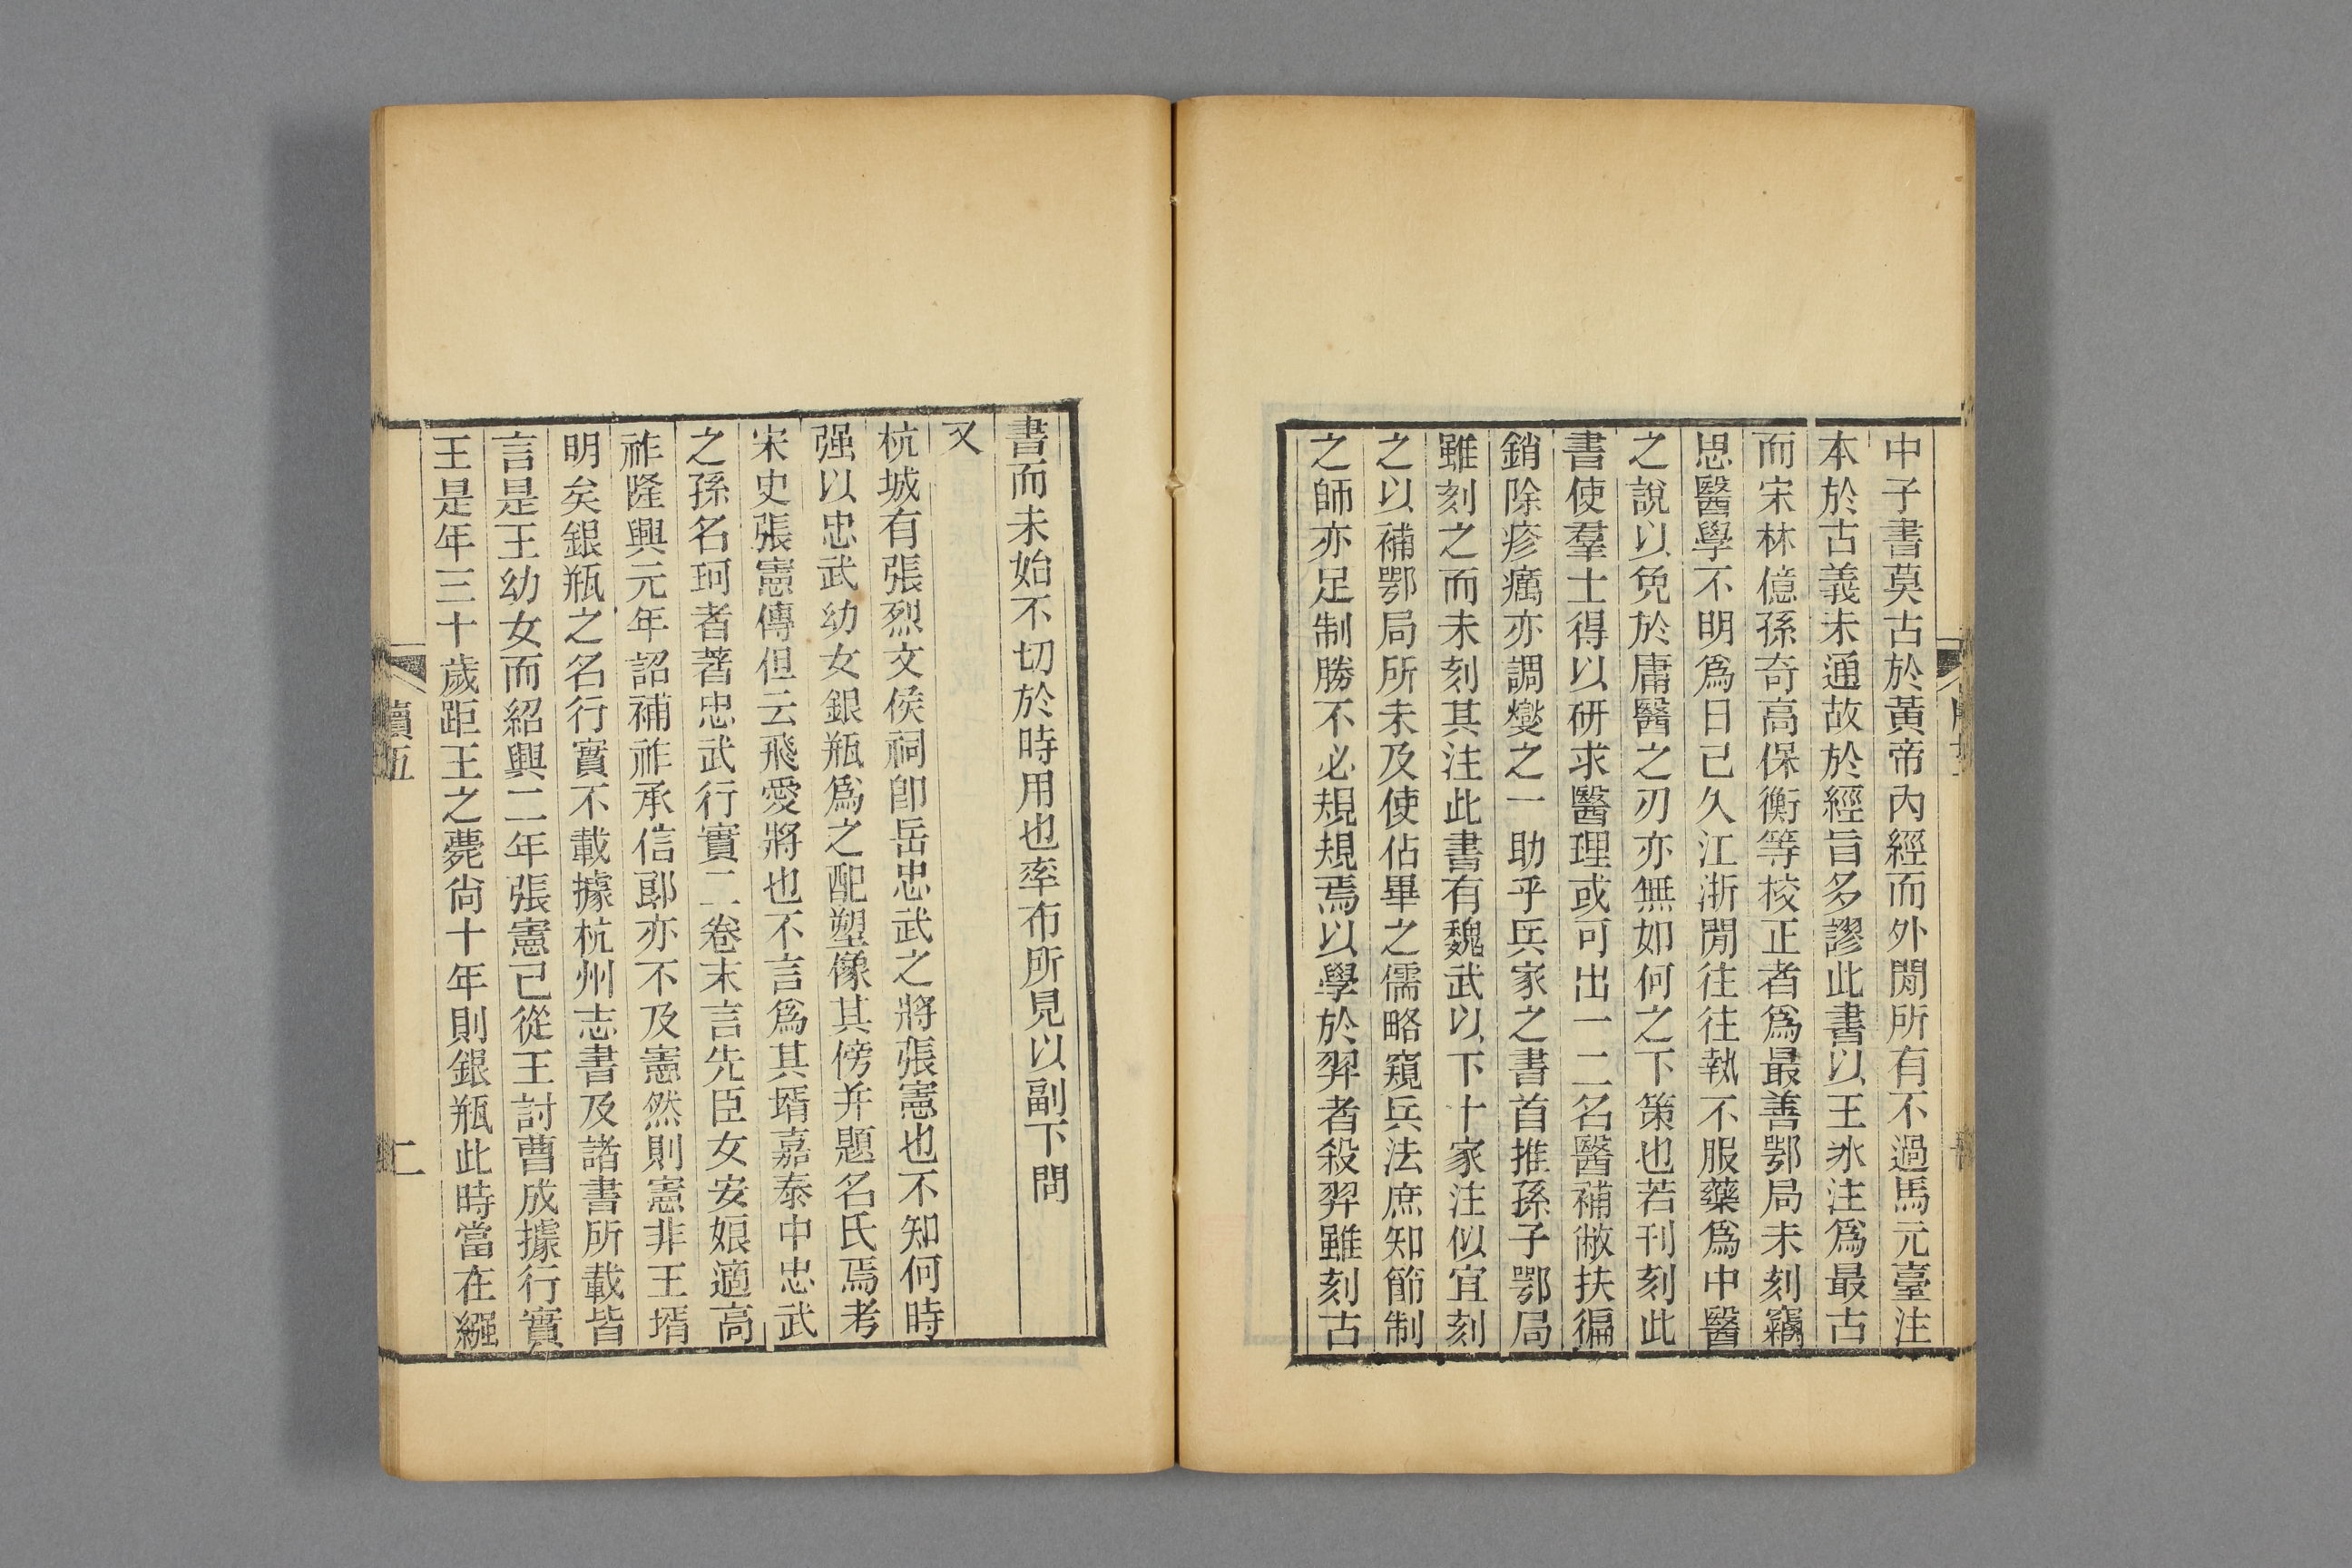 中子書莫古於黃帝內經而外閒所有不過馬元臺注
本於古義未通故於經旨多謬此書以王冰注爲最古
而宋林億孫奇高保衡等校正者爲最善鄂局未刻竊
思醫學不明爲日已久江浙閒往往執不服藥爲中醫
之說以免於庸醫之刃亦無如何之下策也若刊刻此
書使羣士得以研求醫理或可出一二名醫補敝扶徧
銷除疹癘亦調燮之一助乎兵家之書首推孫子鄂局
雖刻之而未刻其注此書有魏武以下十家注似宜刻
之以補鄂局所未及使佔畢之儒略窺兵法庶知節制
之師亦足制勝不必規規焉以學於羿者殺羿雖刻古
書而未始不切於時用也率布所見以副下問
又
杭城有張烈文侯祠卽岳忠武之將張憲也不知何時
强以忠武幼女銀瓶爲之配塑像其傍并題名氏焉考
宋史張憲傳但云飛愛將也不言爲其壻嘉泰中忠武
之孫名珂者著忠武行實二卷末言先臣女安娘適高
祚隆興元年詔補祚承信郎亦不及憲然則憲非王壻
明矣銀瓶之名行實不載據杭州志書及諸書所載皆
言是王幼女而紹興二年張憲已從王討曹成據行實
王是年三十歲距王之薨尙十年則銀瓶此時當在繦
牘五
二